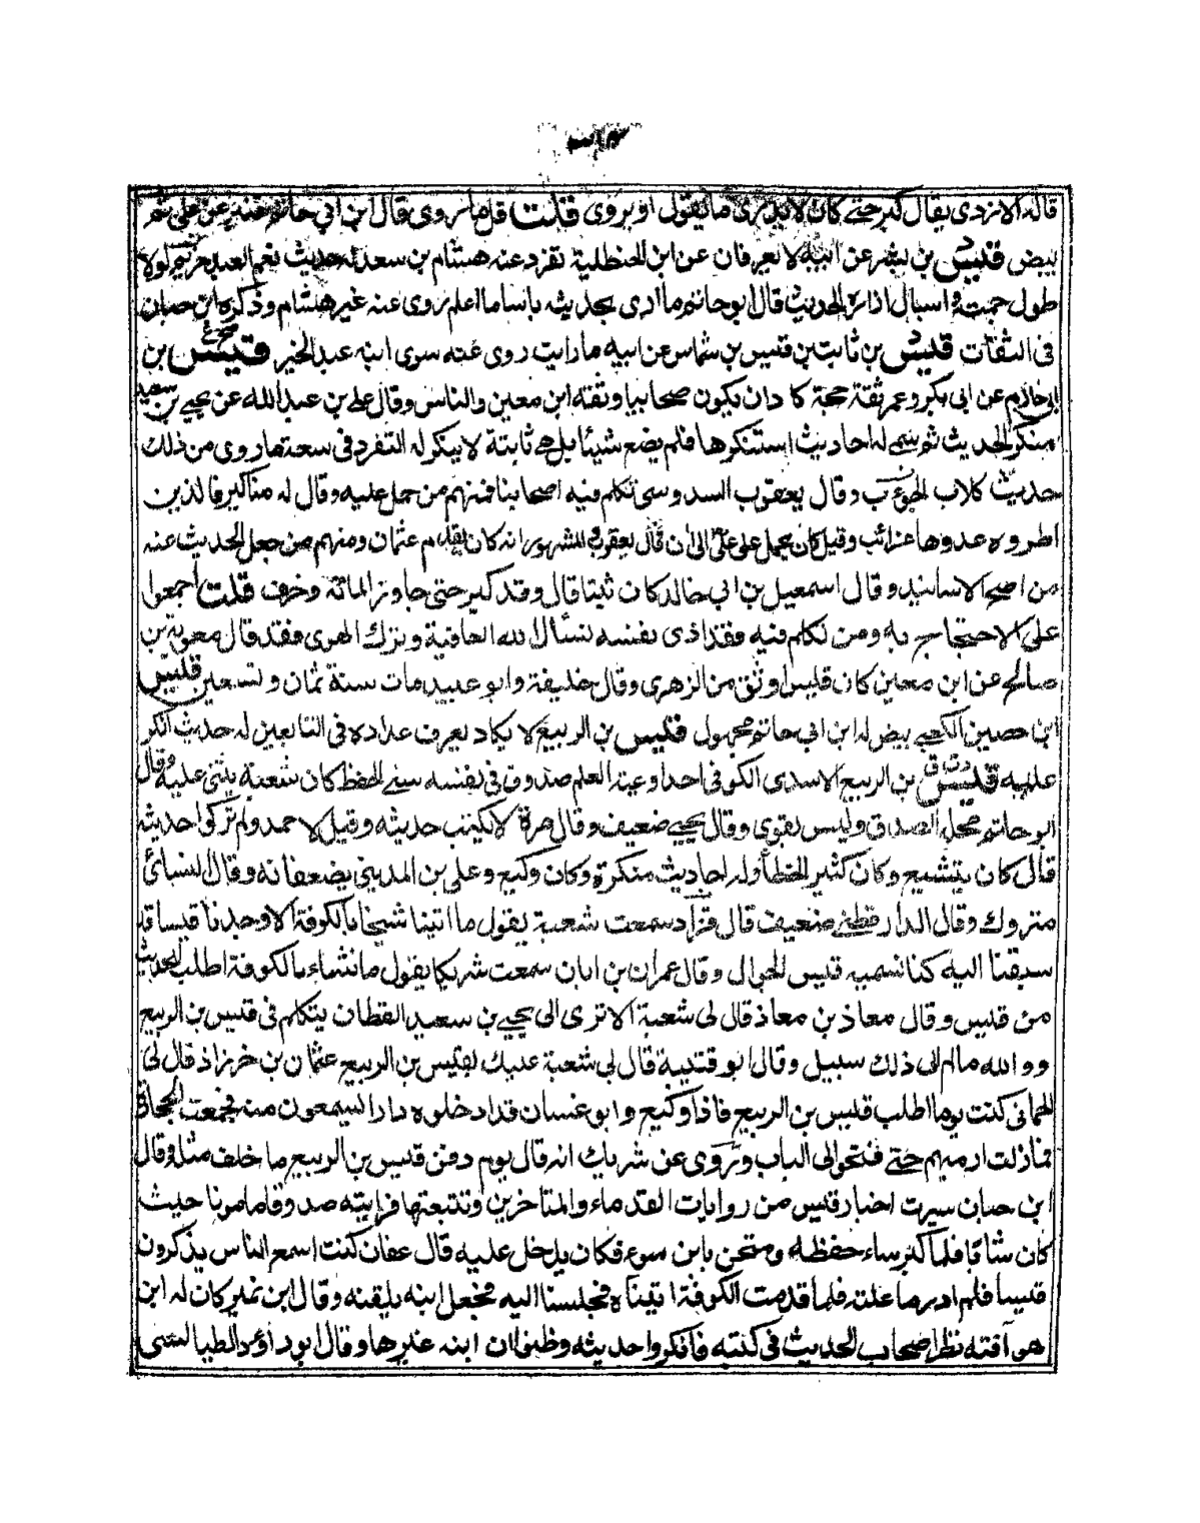 قاله الازدى يقال كبر حتى كان لا يدرى ما يقول او يروى قلت قل ما روى قال ابن ابي حاتم عنبر عن على ثم
بيض قيس بن بشر عن ابيه لا يعرفان عن ابن الحنظلية تفرد عنه هشام بن سعد له حديث نعم العبد خريم لولا
طول جمته و اسبال ازاره الحديث قال ابو حاتم ما ارى بحديثه باسا ما اعلم روى عنه غير هشام وذكره ابن حبان
فى الثقات قيس بن ثابت بن قيس بن شماس عن ابيه ما رايت روى عنه سوى ابنه عبد الخبير قيس بن
ابى حازم عن ابى بكر و عمر ثقة حجة كا دان يكون صحابيا وثقه ابن معين والناس وقال على بن عبد الله عن يحيى بن سعيد
منكر الحديث ثم سمى له احاديث استنكرها فلم يضع شيئا بل هى ثابتة لا ينكر له التفرد فى سعة ما روى من ذلك
حديث كلاب الحوءب وقال يعقوب السدوسى تكلم فيه اصحابنا فمنهم من حمل عليه وقال له مناكير فالذين
اطروه عدوها غرائب وقيل كان يحمل على على الى ان قال يعقوب والمشهور انه كان يقدم عثمان ومنهم من جعل الحديث عنه
من اصح الاسانيد وقال اسمعيل بن ابى خالد كان ثبتا قال وقد كبر حتى جاوز المائة وخرف قلت اجمعوا
على الاحتجاج به ومن تكلم فيه فقد اذى نفسه نسأل الله العافية و ترك الهوى فقد قال معوية بن
صالح عن ابن معين كان قيس اوثق من الزهرى وقال خليفة وابو عبيد مات سنة ثمان وتسعين قيس
ابن حصين الكعبى بيض له ابن ابى حاتم مجهول قيس بن الربيع لا يكاد يعرف عداده فى التابعين له حديث انكر
عليه قيس بن الربيع الاسدى الكوفى احد اوعية العلم صدوق فى نفسه سئ الحفظ كان شعبة يثنى عليه وقال
ابو حاتم محله الصدق وليس بقوى وقال يحيى ضعيف وقال مرة لا يكتب حديثه وقيل لاحمد ولم تركوا حديثه
قال كان يتشيع وكان كثير الخطأ وله احاديث منكرة وكان وكيع وعلى بن المدينى يضعفانه وقال النسائى
متروك وقال الدارقطنى ضعيف قال قراد سمعت شعبة يقول ما اتينا شيخا بالكوفة الا وجدنا قيسا قد
سبقنا اليه كنا نسميه قيس الجوال وقال عمران بن ابان سمعت شريكا يقول ما نشاء بالكوفة اطلب للحديث
من قيس وقال معاذ بن معاذ قال لى شعبة الا ترى الى يحيى بن سعيد القطان يتكلم فى قيس بن الربيع
ووالله ما الى ذلك سبيل وقال ابو قتيبة قال لى شعبة عليك بقيس بن الربيع عثمان بن خرزاذ قال لى
الحمانى كنت يوما اطلب قيس بن الربيع فاذا وكيع و ابو غسان قد ادخلوه دارا ليسمعون منه فجمعت الحجارة
فما زلت ارميهم حتى فتحوا لى الباب وتروى عن شريك انه قال يوم دفن قيس بن الربيع ما خلف مثله وقال
ابن حبان سبرت اخبار قيس من روايات القدماء والمتاخرين وتتبعتها فرايته صدوقا مامونا حيث
كان شابا فلما كبر ساء حفظه و متحن بابن سوء فكان يدخل عليه قال عفان كنت اسمع الناس يذكرون
قيسا فلم ادر ما علته فلما قدمت الكوفة اتيناه فجلسنا اليه فجعل ابنه يلقنه وقال ابن نمير كان له ابن
هو آفته نظر اصحاب الحديث فى كتبه فانكروا حديثه وظنوا ان ابنه غيرها وقال ابو داؤد الطيالسى